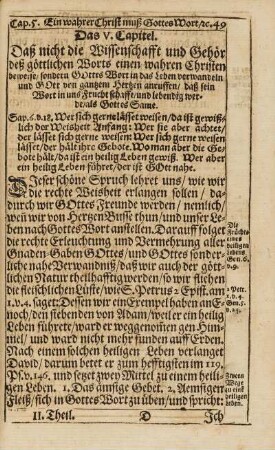 Cap. 5. Ein wahrer Christ muß Gottes Wort/ꝛc. 49
Das V. Capitel.
Daß nicht die Wissenschafft und Gehör
deß göttlichen Worts einen wahren Christen
beweise/ sondern Gottes Wort in das Leben verwandeln
und GOtt von gantzem Hertzen anruffen/ daß sein
Wort in uns Frucht schaffe/ und lebendig wer-
de/ als Gottes Same.
Sap. 6. v. 18. Wer sich gerne lässet weisen/ da ist gewiß-
lich der Weisheit Anfang: Wer sie aber achtet/
der lässet sich gerne weisen: Wer sich gerne weisen
lässet/ der hält ihre Gebote. Wo man aber die Ge-
bote hält/ da ist ein heilig Leben gewiß. Wer aber
ein heilig Leben führet/ der ist GOtt nahe.
DIeser schöne Spruch lehret uns/ wie wir
die rechte Weisheit erlangen sollen/ da-
durch wir GOttes Freunde werden/ nemlich/
wen̄ wir von Hertzen Busse thun/ und unser Le-
ben nach Gottes Wort anstellen. Darauff folget
die rechte Erleuchtung und Vermehrung aller
Gnaden-Gaben GOttes/ und GOttes sonder-
liche nahe Verwandniß/ daß wir auch der gött-
lichen Natur theilhafftig werden/ so wir fliehen
die fleischlichen Lüste/ wie S. Petrus 2 Epist. am
1. v. 4. saget: Dessen wir ein Exempel haben am E-
noch/ den siebenden von Adam/ weil er ein heilig
Leben führete/ ward er weggenom̄en gen Him-
mel/ und ward nicht mehr funden auff Erden.
Nach einem solchen heiligen Leben verlanget
David/ darum betet er zum hefftigsten im 119.
Ps. v. 146. und setzet zwey Mittel zu einem heili-
gen Leben. 1. Das ämsige Gebet. 2. Aemsigen
Fleiß/ sich in Gottes Wort zu üben/ und spricht:
II. Theil. D Ich
Die
Früchte
eines
heiligen
Lebens
Gen. 6.
v. 9.
2 Petr.
1. v. 4.
Gen. 5.
v. 23.
Zween
Wege
zu einē
heiligen
Leben.